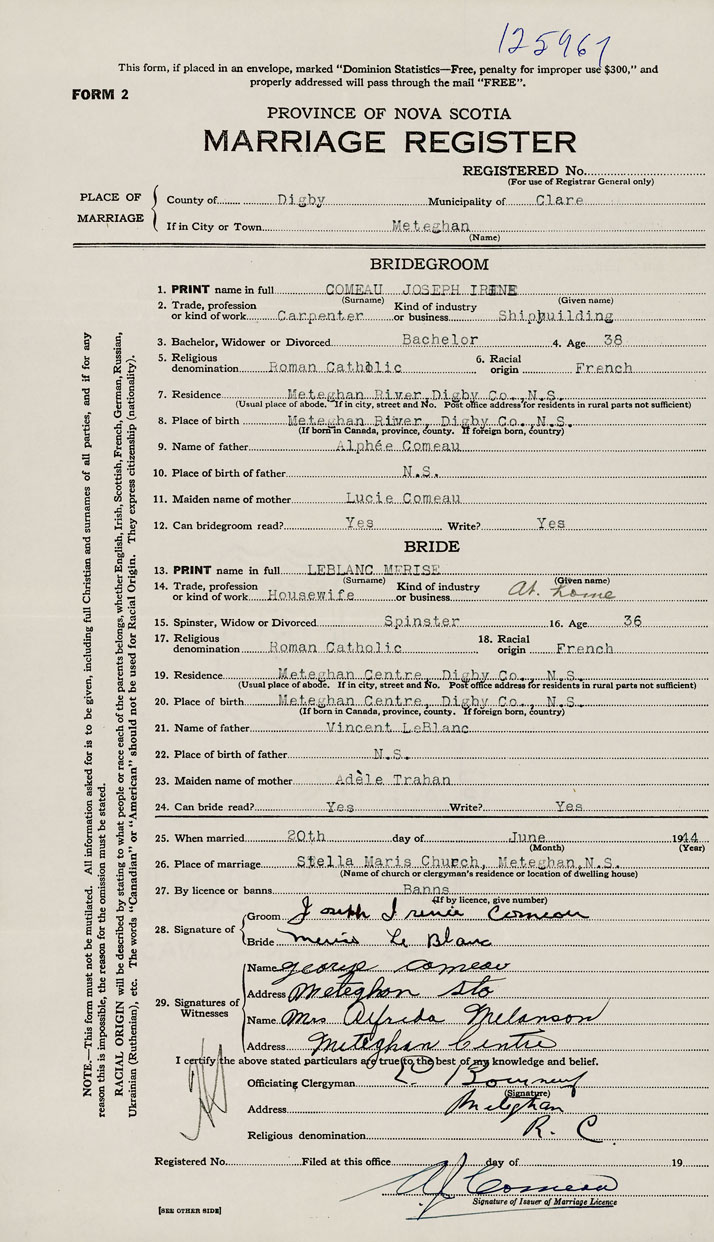 125967
This form, if placed in an envelope, marked “Dominion Statistics—Free, penalty for improper use $300,” and
properly addressed will pass through the mail “FREE”.
FORM 2
PROVINCE OF NOVA SCOTIA
MARRIAGE REGISTER
REGISTERED No.
(For use of Registrar General only)
PLACE OF MARRIAGE
County of Digby Municipality of Clare
If in City or Town Meteghan
(Name)
BRIDEGROOM
1. PRINT name in full COMEAU JOSEPH IRENE
(Surname) (Given name)
2. Trade, profession or kind of work Carpenter Kind of industry or business Shipbuilding
3. Bachelor, Widower or Divorced Bachelor 4. Age 38
5. Religious denomination Roman Catholic 6. Racial origin French
7. Residence Meteghan River, Digby Co., N.S.
(Usual place of abode. If in city, street and No. Post office address for residents in rural parts not sufficient)
8. Place of birth Meteghan River, Digby Co., N.S.
(If born in Canada, province, county. If foreign born, country)
9. Name of father Alphée Comeau
10. Place of birth of father N.S.
11. Maiden name of mother Lucie Comeau
12. Can bridegroom read? Yes Write? Yes
BRIDE
13. PRINT name in full LEBLANC MERISE
(Surname) (Given name)
14. Trade, profession or kind of work Housewife Kind of industry or business At home
15. Spinster, Widow or Divorced Spinster 16. Age 36
17. Religious denomination Roman Catholic 18. Racial origin French
19. Residence Meteghan Centre, Digby Co., N.S.
(Usual place of abode. If in city, street and No. Post office address for residents in rural parts not sufficient)
20. Place of birth Meteghan Centre, Digby Co., N.S.
(If born in Canada, province, county. If foreign born, country)
21. Name of father Vincent LeBlanc
22. Place of birth of father N.S.
23. Maiden name of mother Adèle Trahan
24. Can bride read? Yes Write? Yes
25. When married 20th day of June 1944
(Month) (Year)
26. Place of marriage Stella Maris Church, Meteghan, N.S.
(Name of church or clergyman's residence or location of dwelling house)
27. By licence or banns Banns
(If by licence, give number)
28. Signature of
Groom Joseph Irenie Comeau
Bride Merise Le Blanc
29. Signatures of Witnesses
Name George Comeau
Address Meteghan Sta
Name Mrs Alfreda Melanson
Address Meteghan Centre
I certify the above stated particulars are true to the best of my knowledge and belief.
Officiating Clergyman
(Signature)
Address Meteghan
Religious denomination R. C.
Registered No. Filed at this office day of 19
A J Comeau
Signature of Issuer of Marriage Licence
[SEE OTHER SIDE]
NOTE.—This form must not be mutilated. All information asked for is to be given, including full Christian and surnames of all parties, and if for any
reason this is impossible, the reason for the omission must be stated.
RACIAL ORIGIN will be described by stating to what people or race each of the parents belongs, whether English, Irish, Scottish, French, German, Russian,
Ukrainian (Ruthenian), etc. The words “Canadian” or “American” should not be used for Racial Origin. They express citizenship (nationality).